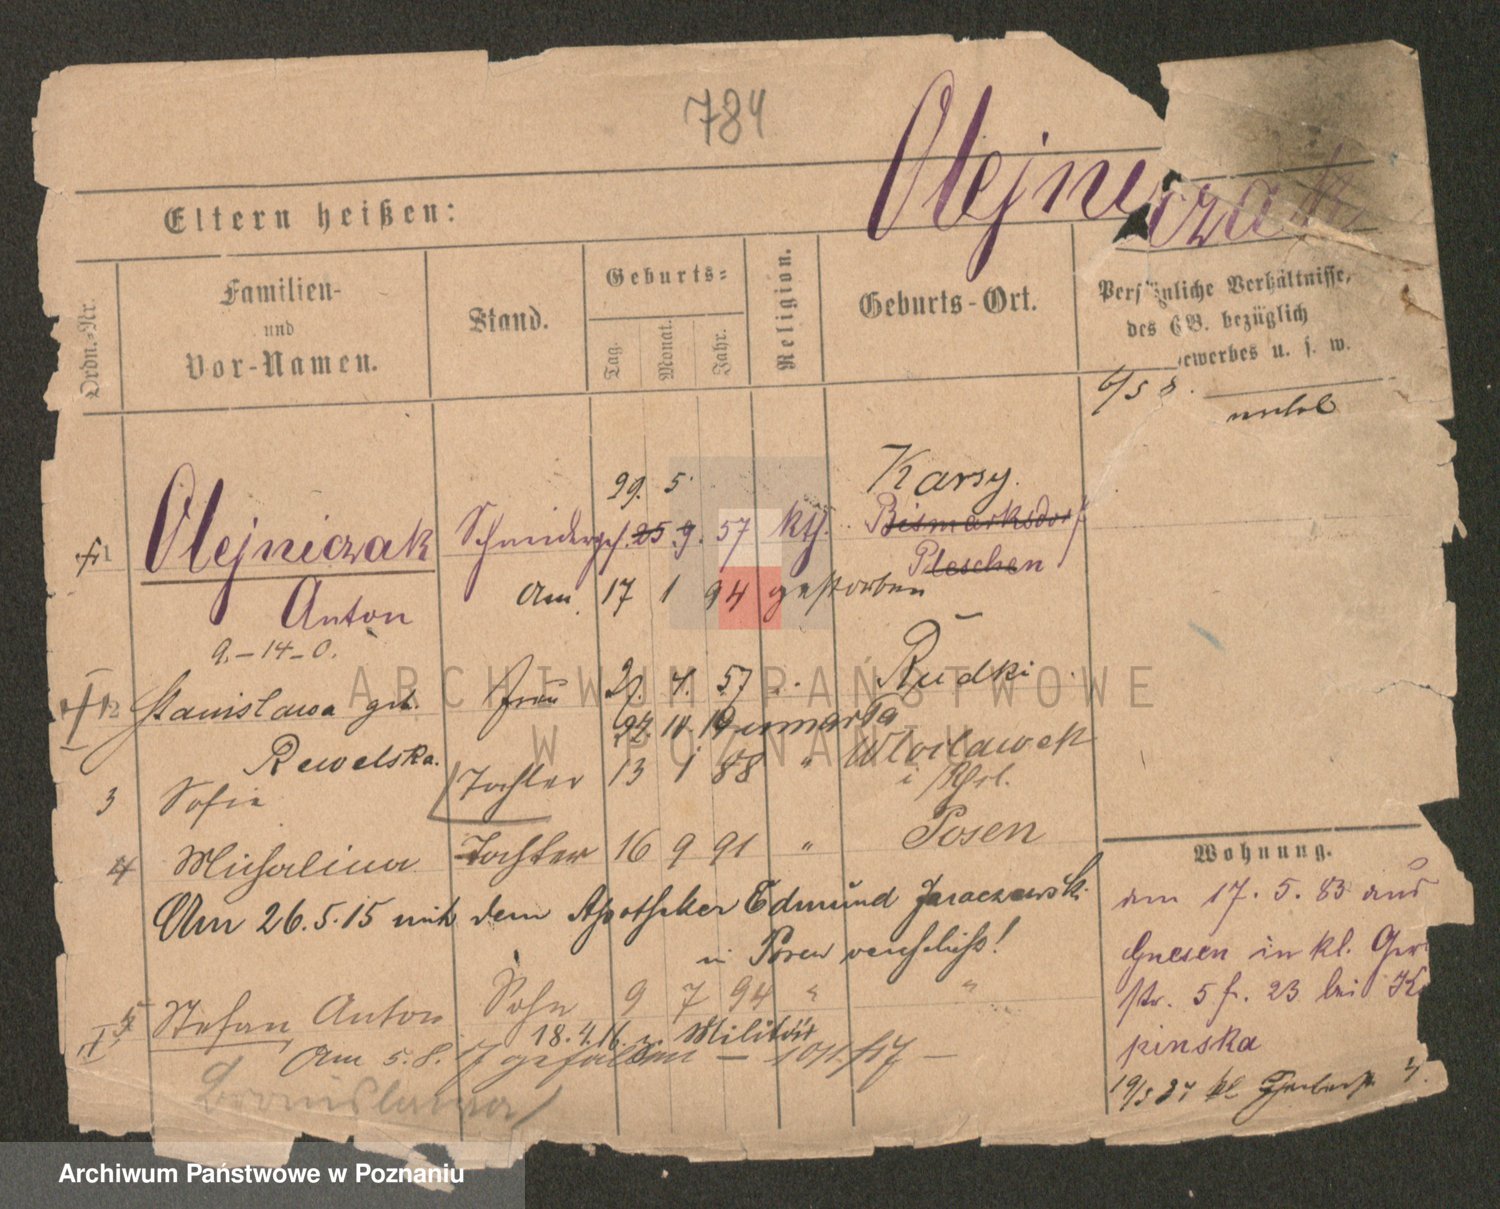 784
Olejniczak
Eltern heißen:
Ordn.-Nr.
Familien-
und
Vor-Namen.
Stand.
Geburts-
Tag.
Monat.
Jahr.
Religion.
Geburts-Ort.
Persönliche Verhältnisse,
des GB. bezüglich
ewerbes u. s. w.
6/5 8.
29. 5 Karsy.
1 Olejniczak Schneiderges. 25. 9. 57 kth. Bismarksdorf
Pleschen
Anton am 17 1 94 gestorben
9.-14-0.
2 Stanislawa geb. Frau 21. 4. 57 " Rudki
27. 10. 19 umarła
Rewelska.
3 Sofie Tochter 13 1 88 " Wloclawek
i/Pol.
4 Michalina Tochter 16 9 91 " Posen
Am 26.5.15 mit dem Apotheker Edmund Jaraczewski
in Posen verehelicht!
5 Stefan Anton Sohn 9 7 94 " "
18.4.16 z. Militär
Am 5.8.17 gefallen — 1011/17 —
Bronislawa
Wohnung.
am 17. 5. 83 aus
Gnesen in kl. Ger
str. 5 f. 23 bei K
pinska
19/5 87 kl Gerberstr 4.
ARCHIWUM PAŃSTWOWE
W POZNANIU
Archiwum Państwowe w Poznaniu